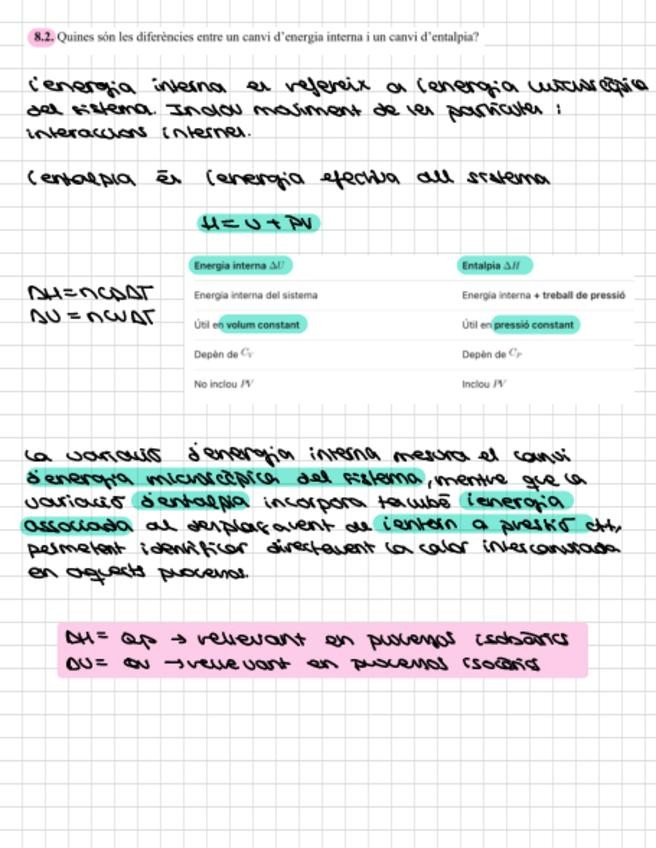 8.2. Quines són les diferències entre un canvi d'energia interna i un canvi d'entalpia?
L'energia interna es refereix a l'energia microscòpica
del sistema. Inclou moviment de les partícules i
interaccions internes.
L'entalpia és l'energia efectiva del sistema
H = U + PV
Energia interna ΔU Entalpia ΔH
ΔH = nCpΔT
ΔU = nCvΔT
Energia interna del sistema Energia interna + treball de pressió
Útil en volum constant Útil en pressió constant
Depèn de C_V Depèn de C_P
No inclou PV Inclou PV
La variació d'energia interna mesura el canvi
d'energia microscòpica del sistema, mentre que la
variació d'entalpia incorpora també l'energia
associada al desplaçament de l'entorn a pressió ctt,
permetent identificar directament la calor intercanviada
en aquests processos.
ΔH = Qp → rellevant en processos isobàrics
ΔU = Qv → rellevant en processos isocòrics